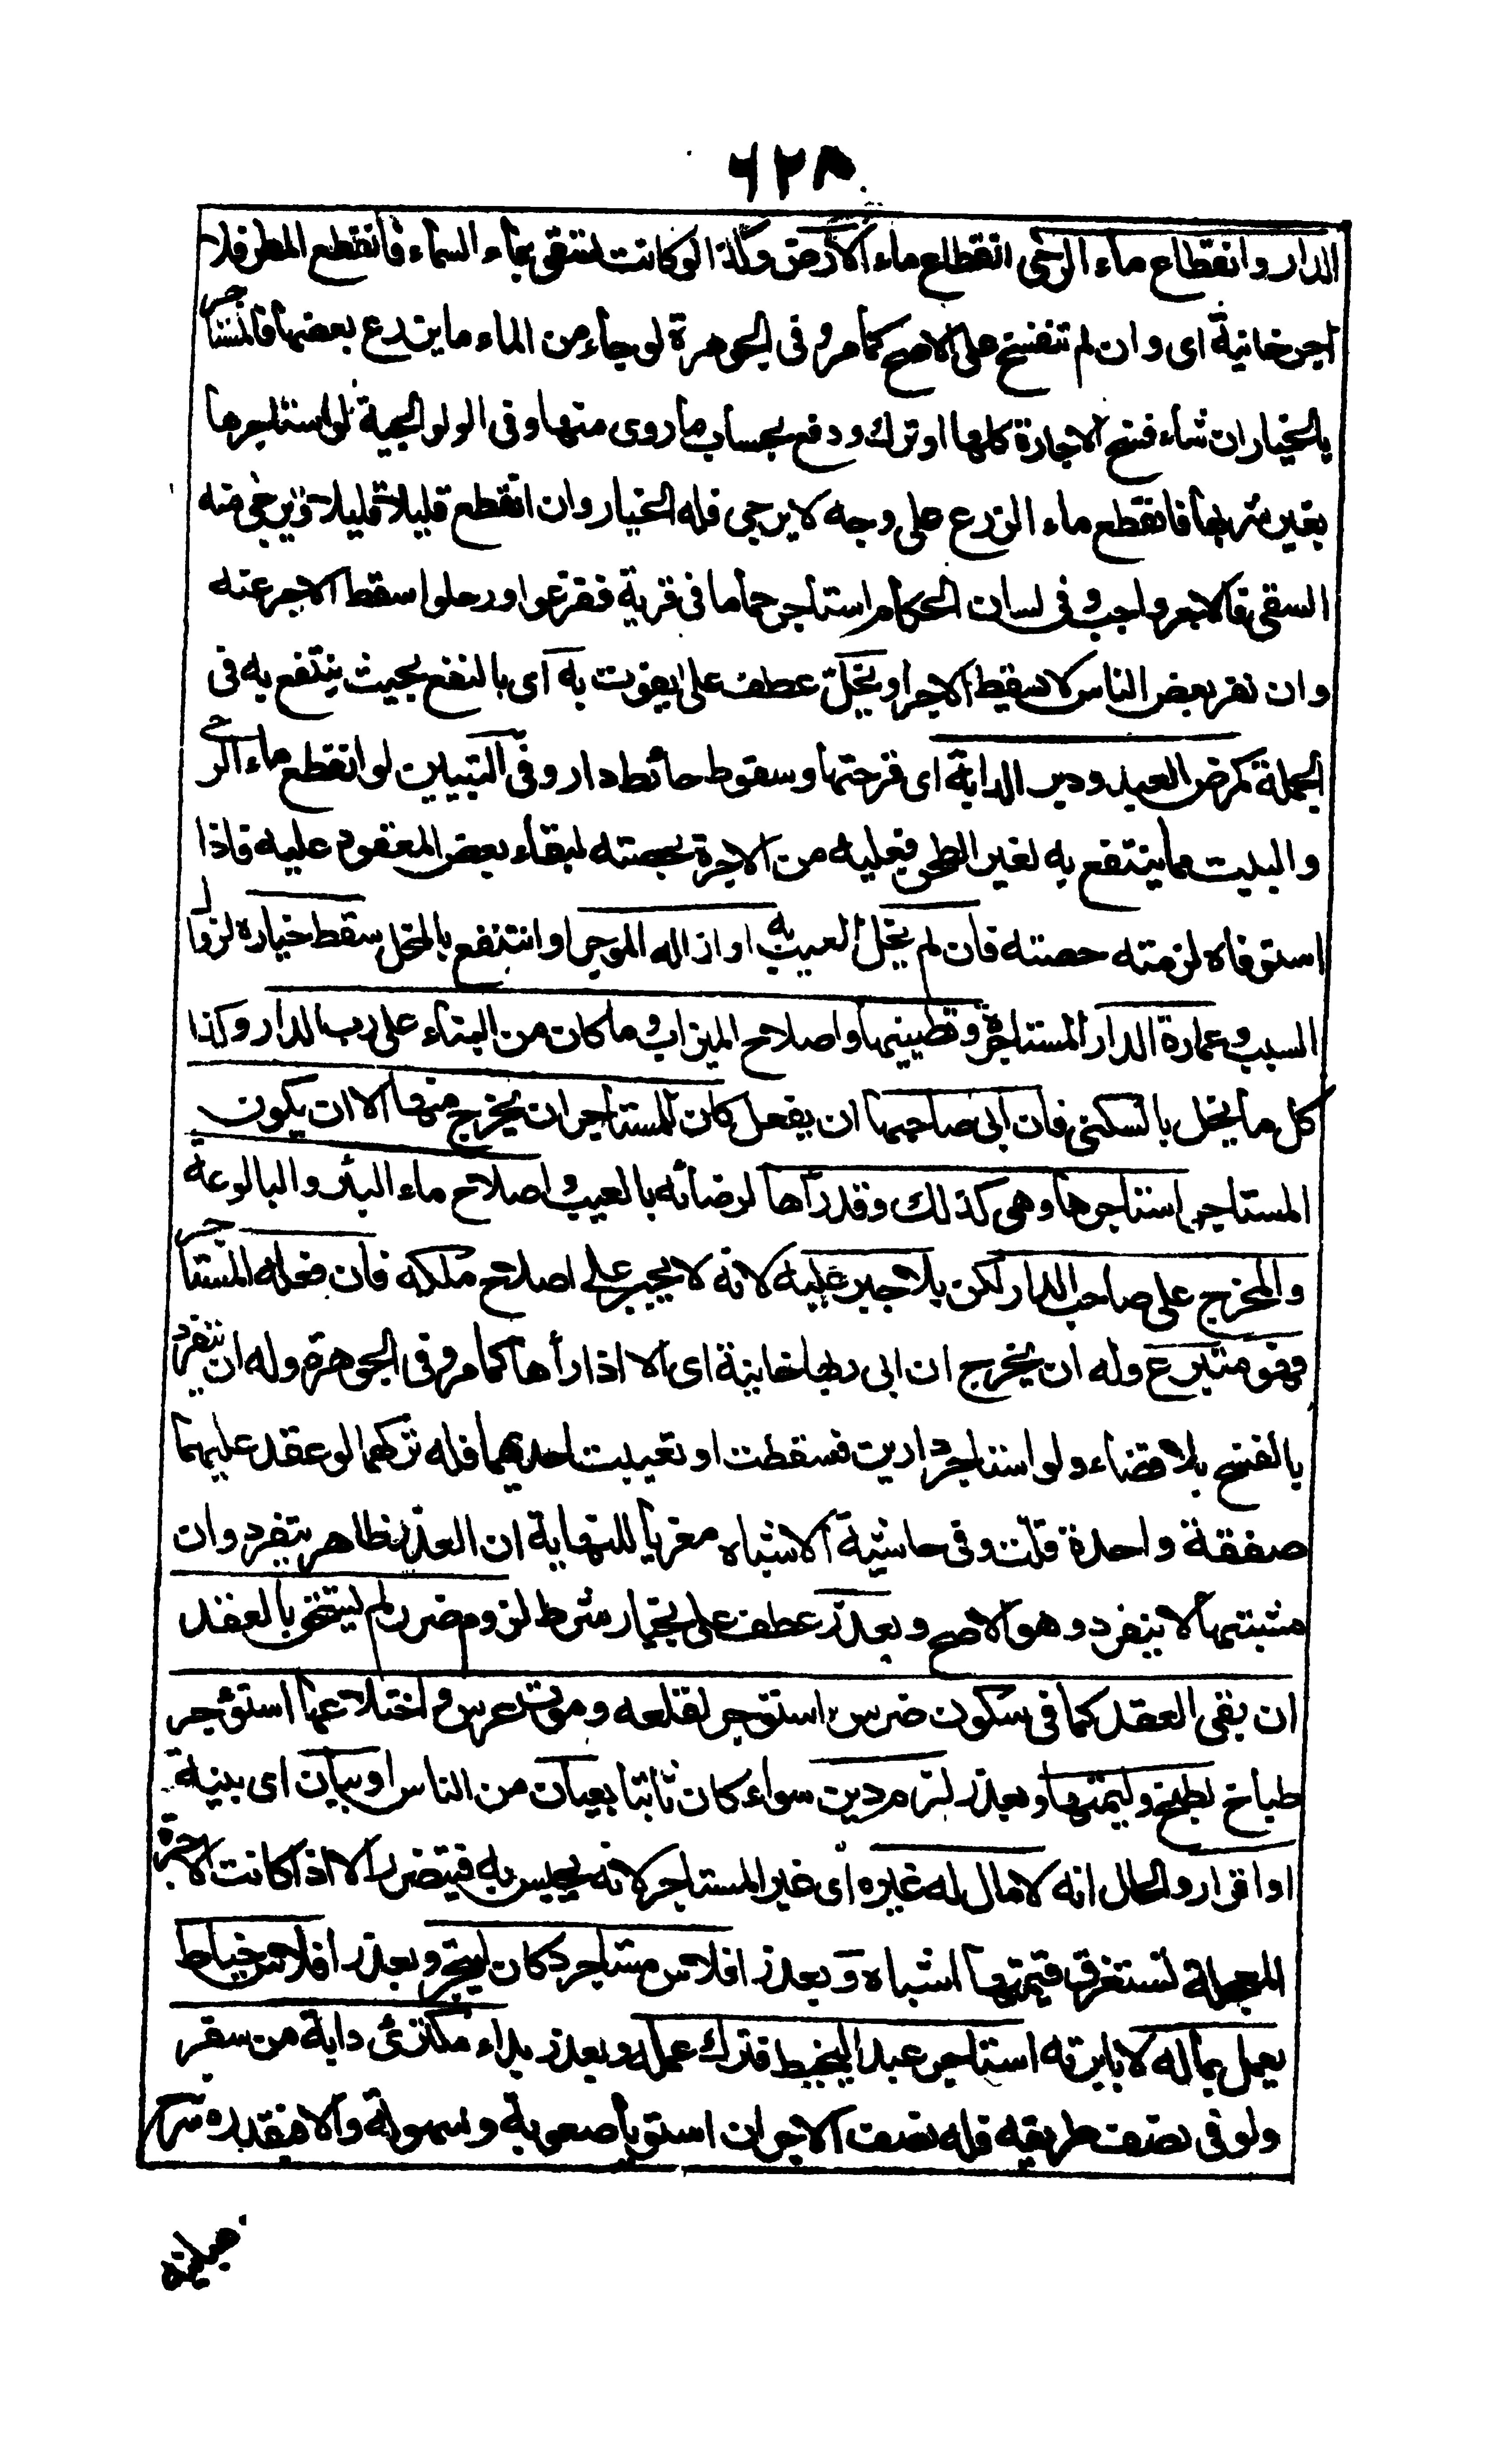 ٦٢٨
الدار وانقطاع ماء الرحى انقطاع ماء الأرض وكذا لو كانت تسقى بماء السماء فانقطع المطر فلا
اجر خانية اى وان لم تنفسخ على الاصح كما مر وفى الجوهرة لو جاء من الماء ما يزرع بعضها فالمستأجر
بالخيار ان شاء فسخ الاجارة كلها او ترك ودفع بحساب ما روى منها وفى الولوالجية لو استاجرها
بغير شربها فانقطع ماء الزرع على وجه لا يرجى فله الخيار وان انقطع قليلا قليلا ويرجى منه
السقى فالاجر واجب وفى لسان الحكام استاجر حماما فى قرية ففزعوا ورحلوا سقط الاجر عنه
وان نفر بعض الناس لا سقط الاجر او يخل عطف على يفوت به اى بالنفع بحيث ينتفع به فى
الجملة كمرض العبد ودبر الدابة اى قرحتها وسقوط حائط دار وفى التبيين لو انقطع ماء الرحى
والبيت مما ينتفع به لغير الطحن فعليه من الاجرة بحصته لبقاء بعض المعقود عليه فاذا
استوفاه لزمته حصته فان لم يخل العيب به او ازاله الموجر او انتفع بالمخل سقط خياره لزوال
السبب وعمارة الدار المستاجرة وتطيينها واصلاح الميزاب وما كان من البناء على رب الدار وكذا
كل ما يخل بالسكنى فان ابى صاحبها ان يفعل كان للمستأجر ان يخرج منها الا ان يكون
المستاجر استاجرها وهى كذلك وقد رآها لرضائه بالعيب واصلاح ماء البئر والبالوعة
والمخرج على صاحب الدار لكن بلا جبر عليه لانه لا يجبر على اصلاح ملكه فان فعله المستأجر
فهو متبرع وله ان يخرج ان ابى ربها خانية اى الا اذا رأها كما مر وفى الجوهرة وله ان ينفرد
بالفسخ بلا قضاء ولو استاجر دارين فسقطت او تعيبت احديهما فله تركهما لو عقد عليهما
صفقة واحدة قلت وفى حاشية الاشباه معزيا للنهاية ان العذر ظاهر ينفرد وان
مشتبها لا ينفرد وهو الاصح وبعذر عطف على بخيار شرط لزوم ضرر لم يستحق بالعقد
ان بقى العقد كما فى سكون ضرس استوجر لقلعه وموت عرس واختلاعها استؤجر
طباخ لطبخ وليمتها وبعذر لزوم دين سواء كان ثابتا بعيان من الناس او بيان اى بينة
او اقرار والحال انه لا مال له غيره اى غير المستاجر لانه يحبس به فيتضرر الا اذا كانت الاجرة
المعجلة تستغرق قيمتها اشباه وبعذر افلاس مستاجر دكان ليتجر وبعذر افلاس خياط
يعمل بماله لا بابرته استاجر عبدا ليخيط فترك عمله وبعذر بداء مكترى دابة من سفر
ولو فى نصف طريقه فله نصف الاجر ان استويا صعوبة وسهولة والا فبقدره شرح